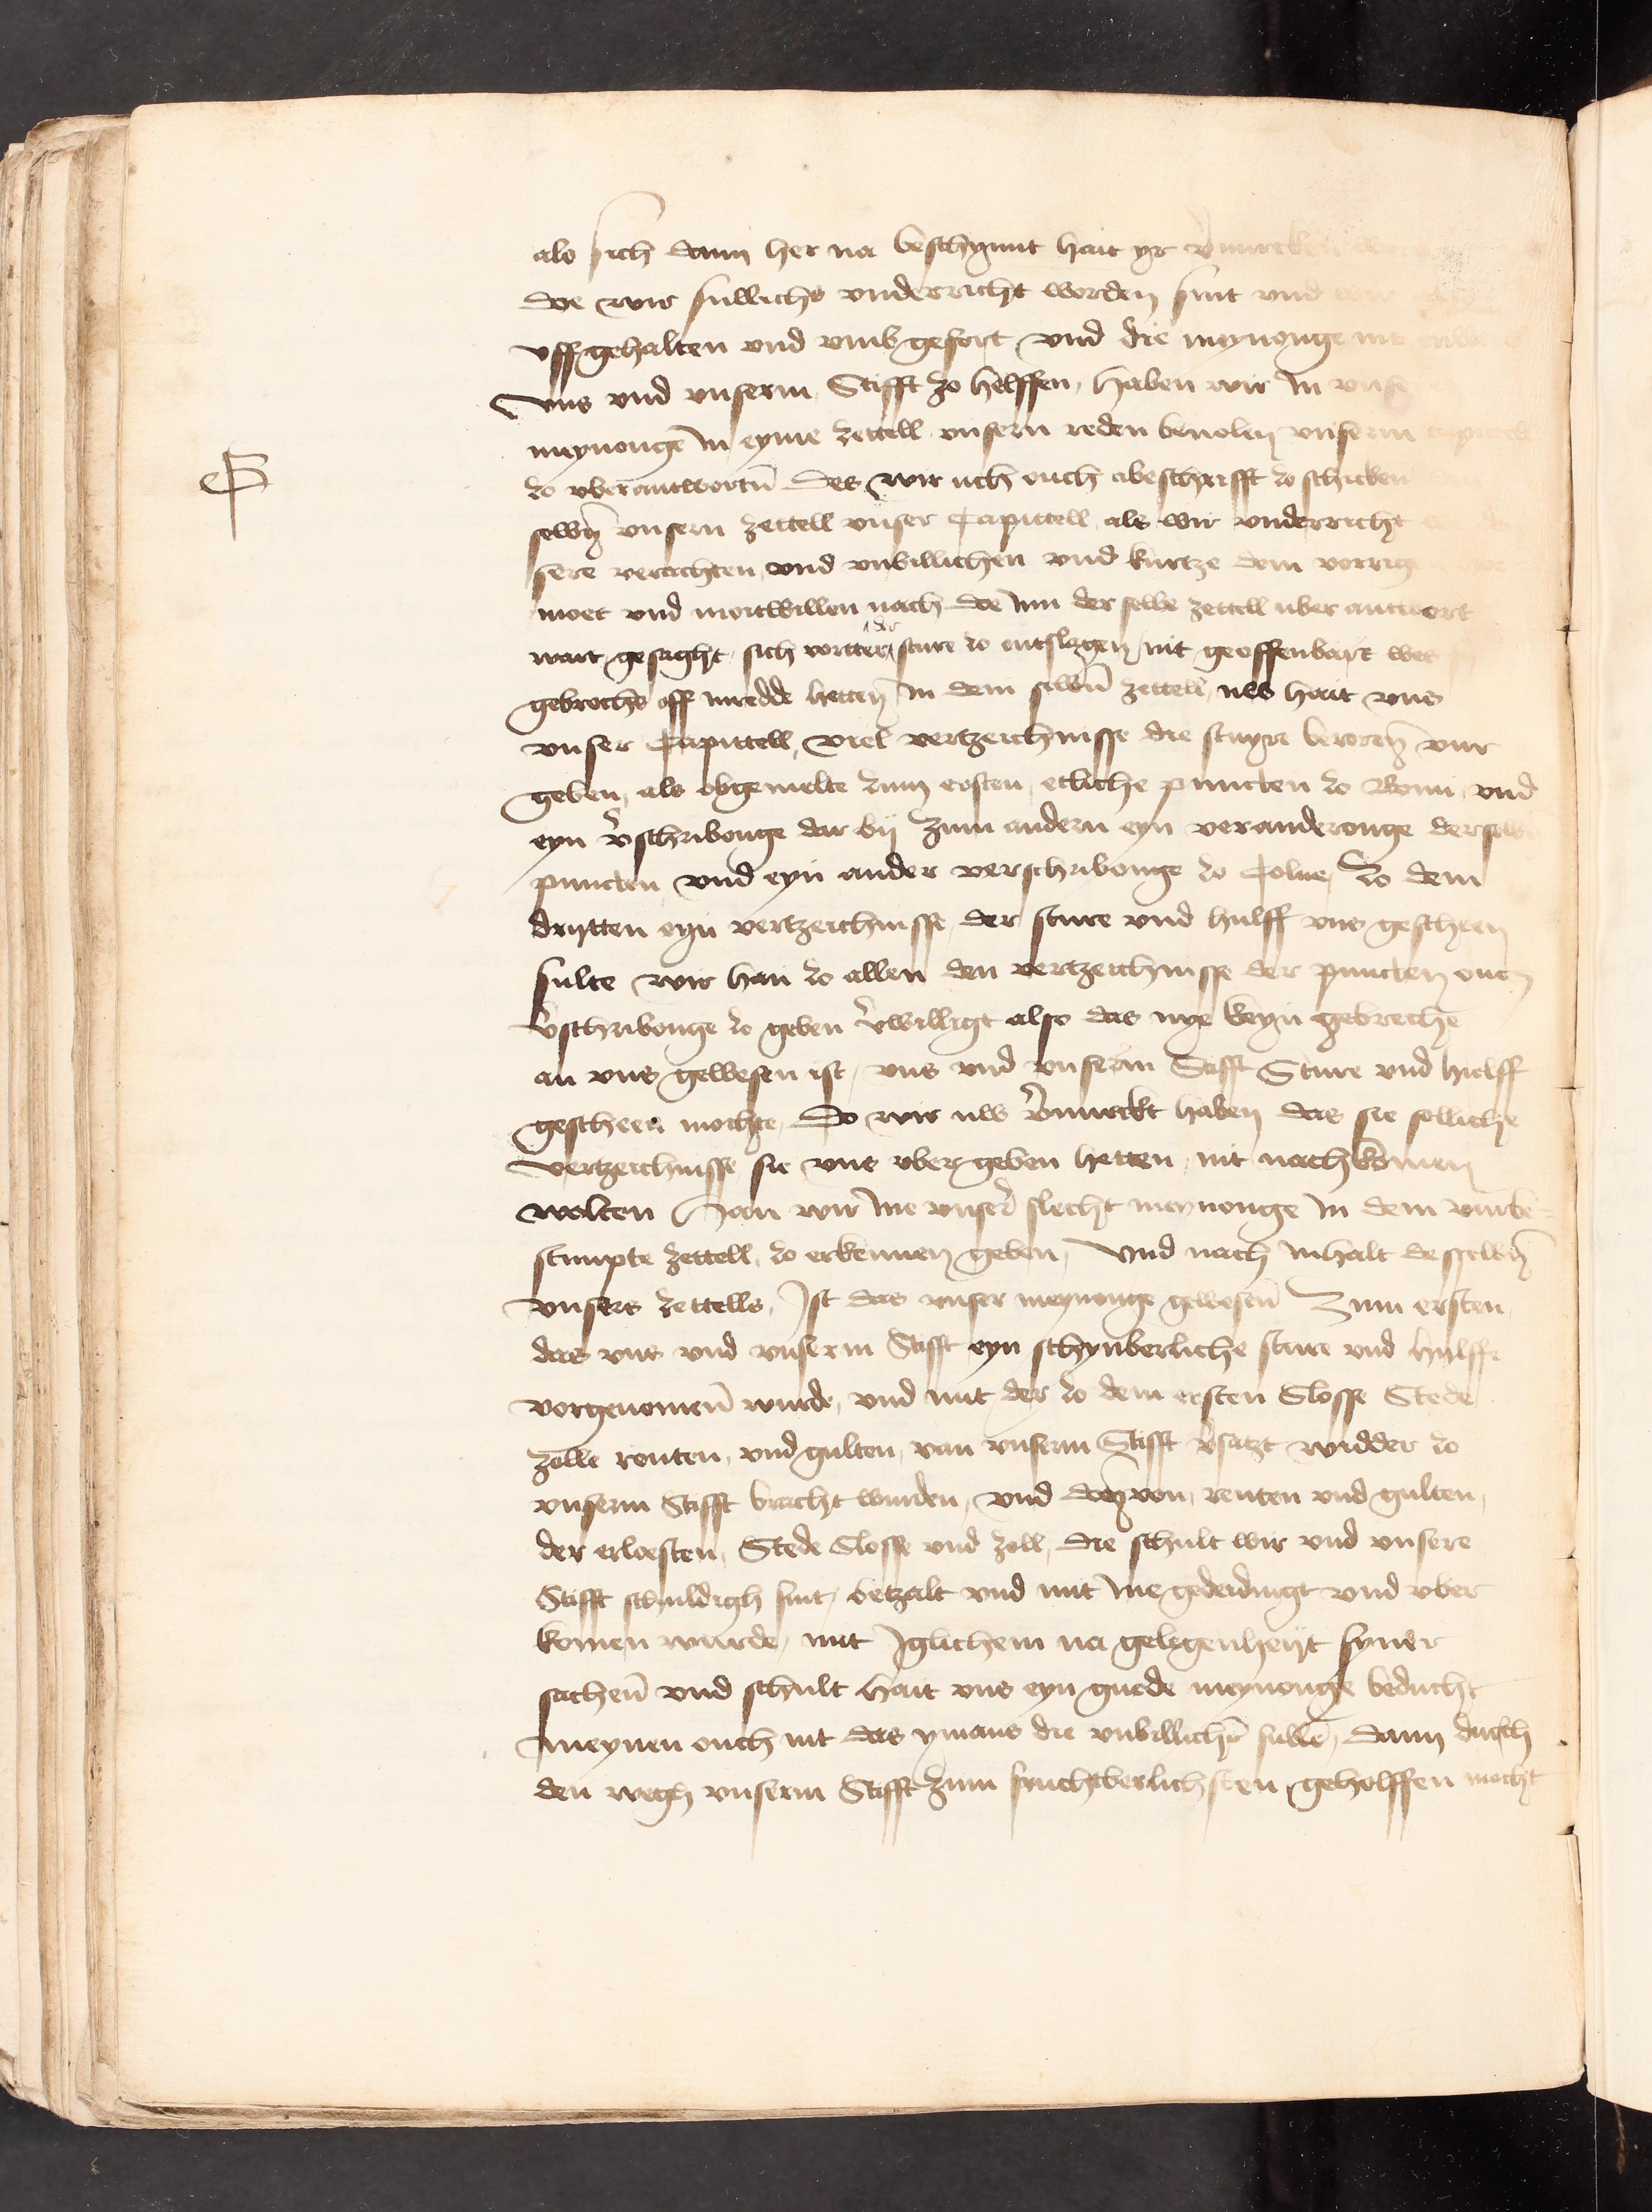 als sich dann her na beschynnt hait yr v̉mircken
Doe wir sullichs vnderricht worden sint vnd
vff gehalten vnd vmb gefort vnd die meynonge nit
Vns vnd vnserm Stifft zo helffen, haben wir in vnse
meynonge in eyme zettell vnsern reden beuolen vnserm capittell
zo uberantwortn̄ Des wir uch ouch abeschrifft zo schicken
selwen vnsern zettell vnser Capittell als wir vnderricht
sere verachten vnd vnbillichen vnd kurtze dem vorrige
moet vnd moitwillen nach Doe inn der selbe zettell uber antwort
wart gesaght sich vortter der sture zo entslagen nit geoffenbart wes
gebrechs off inredde hetten in dem selbn̄ zettell, uns hait vns
vnser Capittell, viel vertzeichnisse die stuyre beroren vur
geben, als obgemelte zum ersten etliche puncten zo Bonn vnd
eyn v̉schribonge dar bij Zum andern eyn veranderonge derselbn
puncten vnd eyn ander verschribonge zo Colne, Zo dem
drytten eyn vertzeichnisse der sture vnd hulff vns gescheen
sulte wir han zo allen den vertzeichnisse der puncten ouch
v̉schribonge zo geben v̉williget also das nye keyn gebreche
an vns gewesen ist, vns vnd vnserm Stifft Sture vnd hulff
gescheen mochte, Do wir nw v̉mirckt haben das sie solliche
Vertzeichnisse sie vns vbergeben hetten nit nachkomen
wolten Han wir ine vnser slecht meynonge in dem vurbe
stimpte zettell, zo erkennen geben, Vnd nach inhalt desselbn̄
vnsers zettells, Jst das vnser meynonge gewesen̄ Zum ersten
das vns vnd vnserm Stifft eyn schynberliche sture vnd hulffe
vorgenomen̄ wurde, vnd mit der zo dem ersten Slosse Stede
zolle renten, vnd gulten, van vnserm Stifft v̉satzt widder zo
vnserm Stifft bracht wurden, vnd da von, renten vnd gulten,
der erloesten, Stede Slosse vnd zoll, die schult wir vnd vnsere
Stifft schuldigh sint, betzalt vnd mit ine gededingt vnd vber
komen wurde, mit Jglichem na gelegenheijt syner
sachen̄ vnd schult hait vns eyn guede meynonge beducht
meynen ouch nit das ymans die vnbillichē sulle, dann durch
den wegh vnserm Stifft zum fruchtberlichsten geholffen mocht